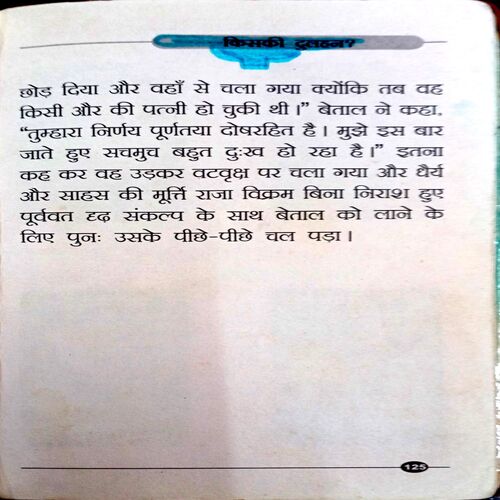 किसकी दुलहन?
छोड़ दिया और वहाँ से चला गया क्योंकि तब वह
किसी और की पत्नी हो चुकी थी।” बेताल ने कहा,
“तुम्हारा निर्णय पूर्णतया दोषरहित है। मुझे इस बार
जाते हुए सचमुच बहुत दुःख हो रहा है।” इतना
कह कर वह उड़कर वटवृक्ष पर चला गया और धैर्य
और साहस की मूर्त्ति राजा विक्रम बिना निराश हुए
पूर्ववत दृढ़ संकल्प के साथ बेताल को लाने के
लिए पुनः उसके पीछे-पीछे चल पड़ा।
125